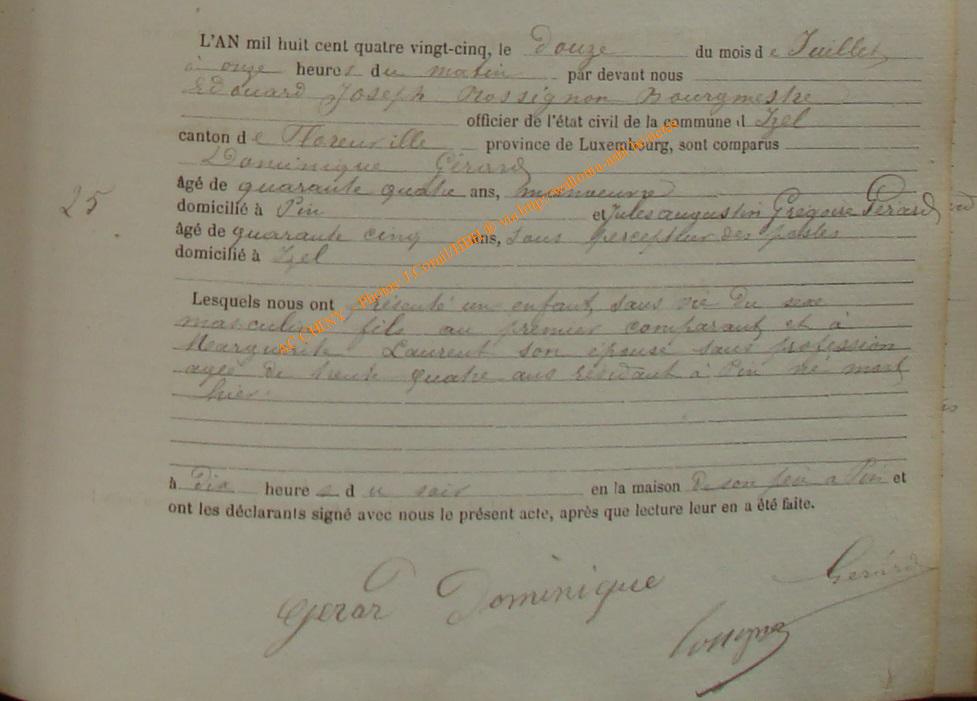 L'AN mil huit cent quatre vingt-cinq, le Douze du mois de Juillet
à onze heures du matin par devant nous
Edouard Joseph Rossignon Bourgmestre
officier de l'état civil de la commune d Izel
canton de Florenville province de Luxembourg, sont comparus
Dominique Gérard
âgé de quarante quatre ans, manoeuvre
25
domicilié à Pin et Jules augustin Grégoire Gérard
âgé de quarante cinq ans, sous percepteur des postes
domicilié à Izel
Lesquels nous ont présenté un enfant sans vie du sexe
masculin fils au premier comparant et à
Marguerite Laurent son épouse sans profession
agée de trente quatre ans résidant à Pin né mort
hier.
à Dix heures du soir en la maison de son père a Pin et
ont les déclarants signé avec nous le présent acte, après que lecture leur en a été faite.
Gerar Dominique
Gerard
ACCHINY - Photos J Cornil Hittl ® via http://wallonia-asbl